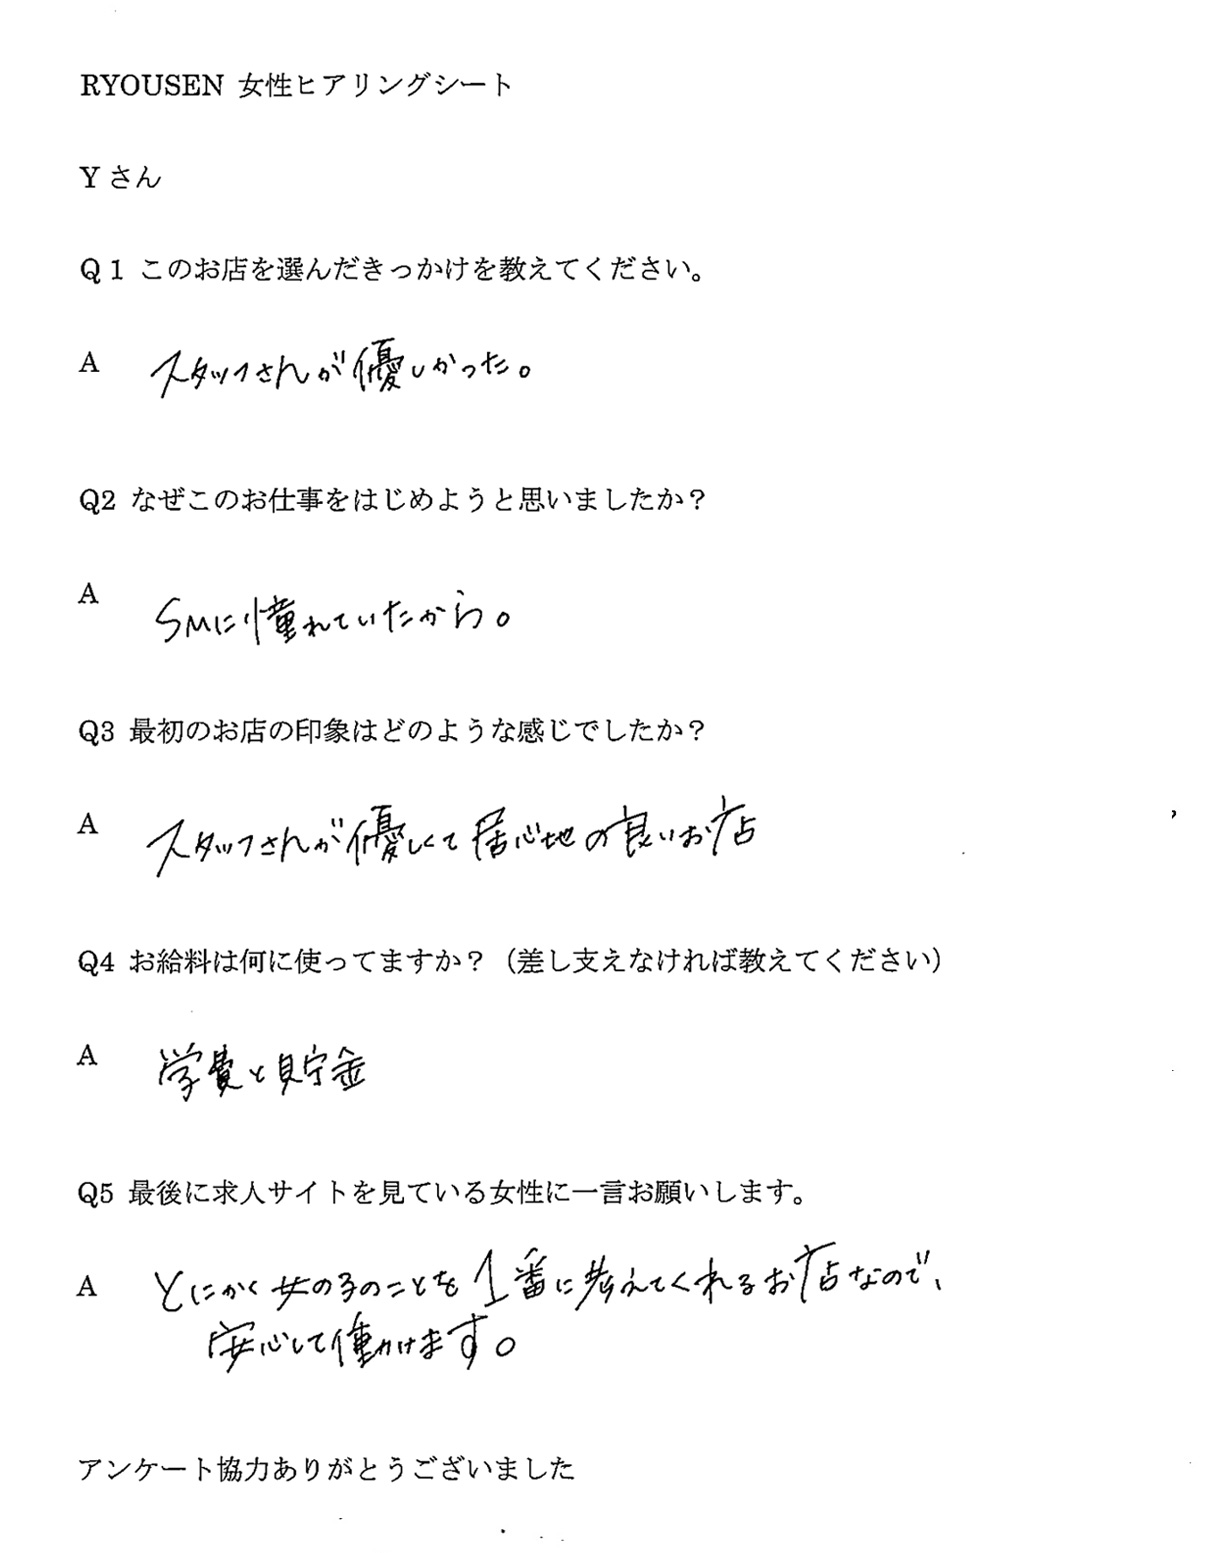 RYOUSEN 女性ヒアリングシート
Y さん
Q 1 このお店を選んだきっかけを教えてください。
A スタッフさんが優しかった。
Q2 なぜこのお仕事をはじめようと思いましたか？
A SMに憧れていたから。
Q3 最初のお店の印象はどのような感じでしたか？
A スタッフさんが優しくて居心地の良いお店
Q4 お給料は何に使ってますか？（差し支えなければ教えてください）
A 学費と貯金
Q5 最後に求人サイトを見ている女性に一言お願いします。
A とにかく女の子のことを1番に考えてくれるお店なので、
安心して働けます。
アンケート協力ありがとうございました